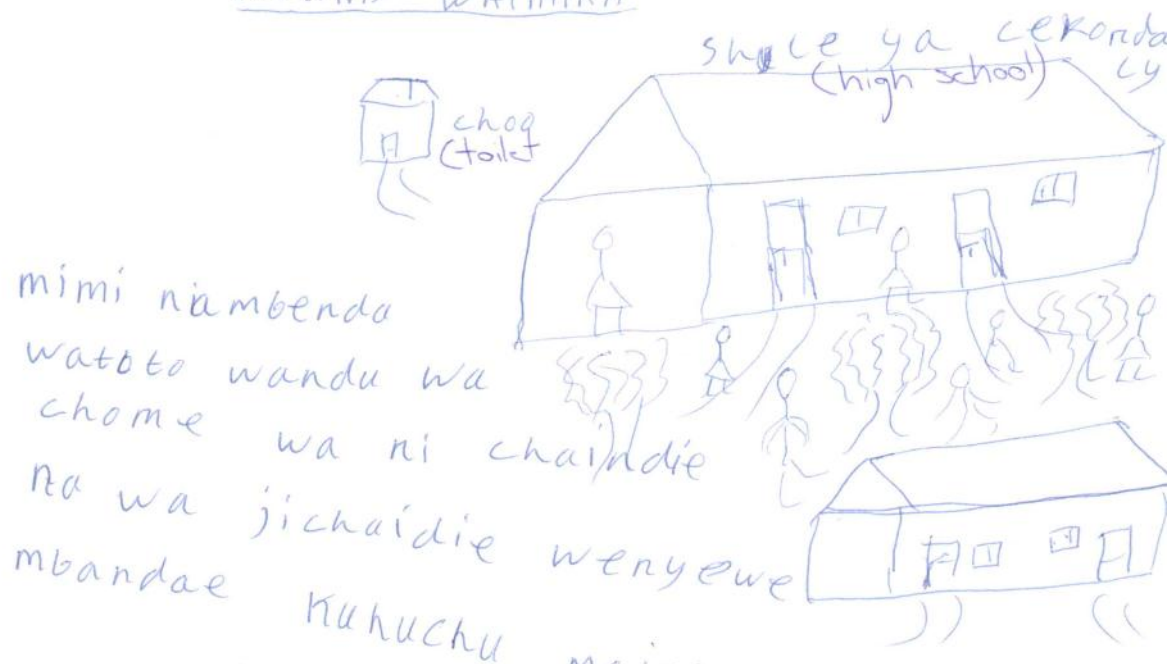 shule ya cekonda
(high school) ly
choq
(toilet
mimi niambenda
watoto wandu wa
chome wa ni chaindie
na wa jichaidie wenyewe
mbandae kuhuchu